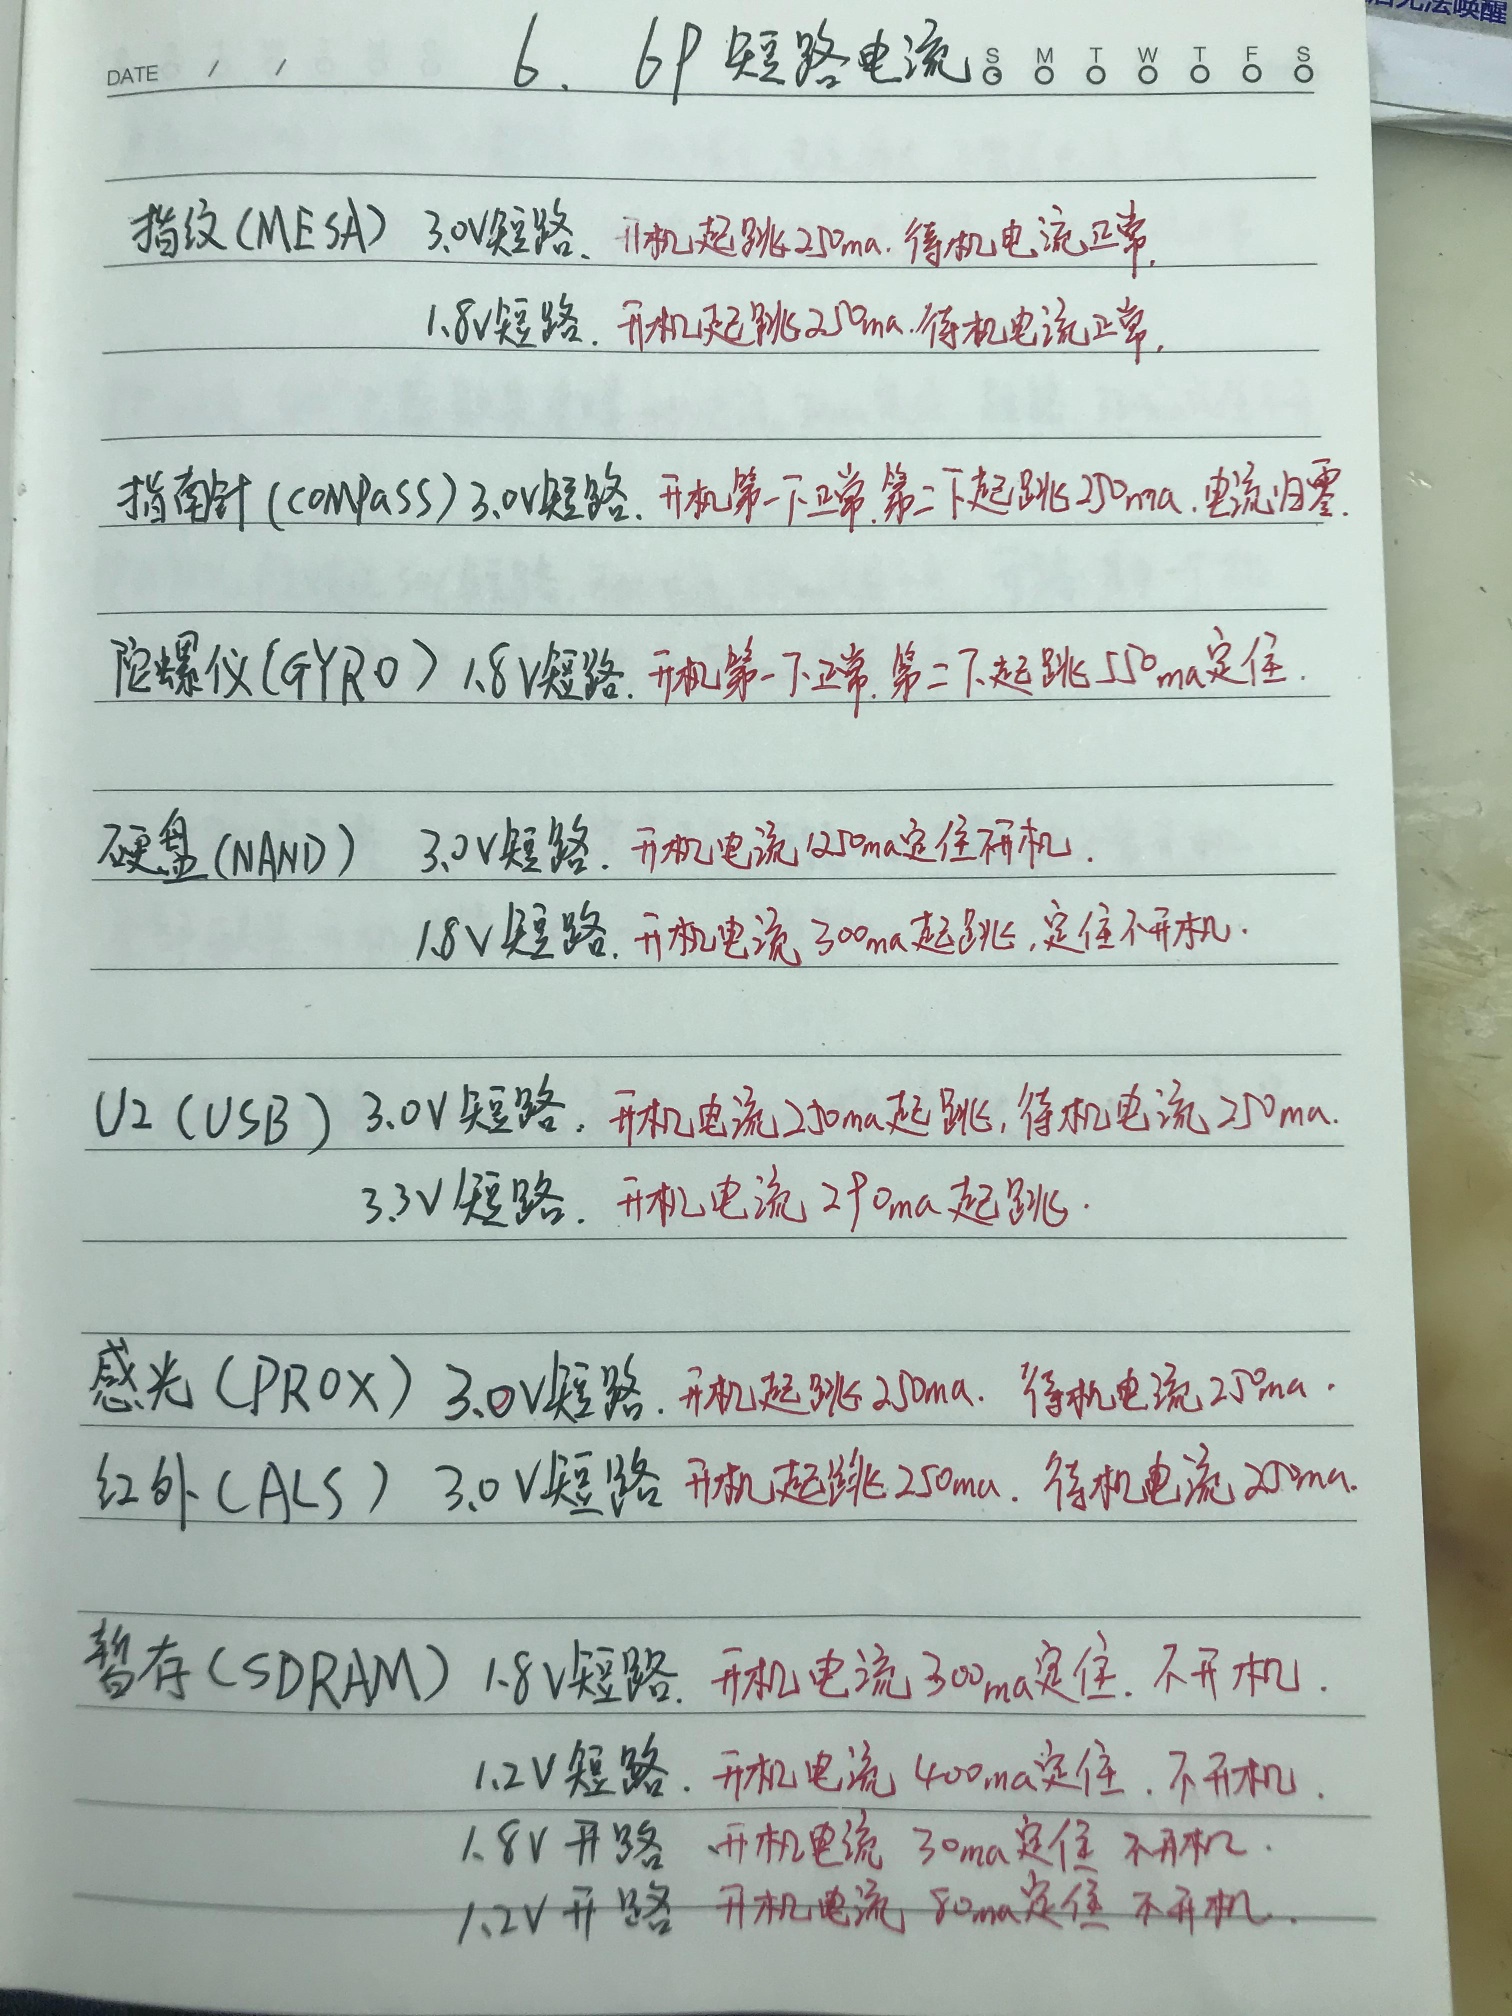 后无法唤醒
DATE / / 6. 6P 短路电流 S M T W T F S
指纹(MESA) 3.0V短路. 开机起跳250ma.待机电流正常.
1.8V短路. 开机起跳250ma.待机电流正常.
指南针(COMPaSS)3.0V短路. 开机第一下正常.第二下起跳250ma.电流归零.
陀螺仪(GYRO) 1.8V短路. 开机第一下正常.第二下起跳550ma定住.
硬盘(NAND) 3.0V短路. 开机电流1250ma定住不开机.
1.8V短路. 开机电流300ma起跳,定住不开机.
U2(USB) 3.0V短路. 开机电流250ma起跳,待机电流250ma.
3.3V短路. 开机电流290ma起跳.
感光(PROX) 3.0V短路. 开机起跳250ma. 待机电流250ma.
红外(ALS) 3.0V短路 开机起跳250ma. 待机电流250ma.
暂存(SDRAM) 1.8V短路. 开机电流300ma定住. 不开机.
1.2V短路. 开机电流400ma定住. 不开机.
1.8V开路 .开机电流30ma定住 不开机.
1.2V开路 开机电流80ma定住 不开机.